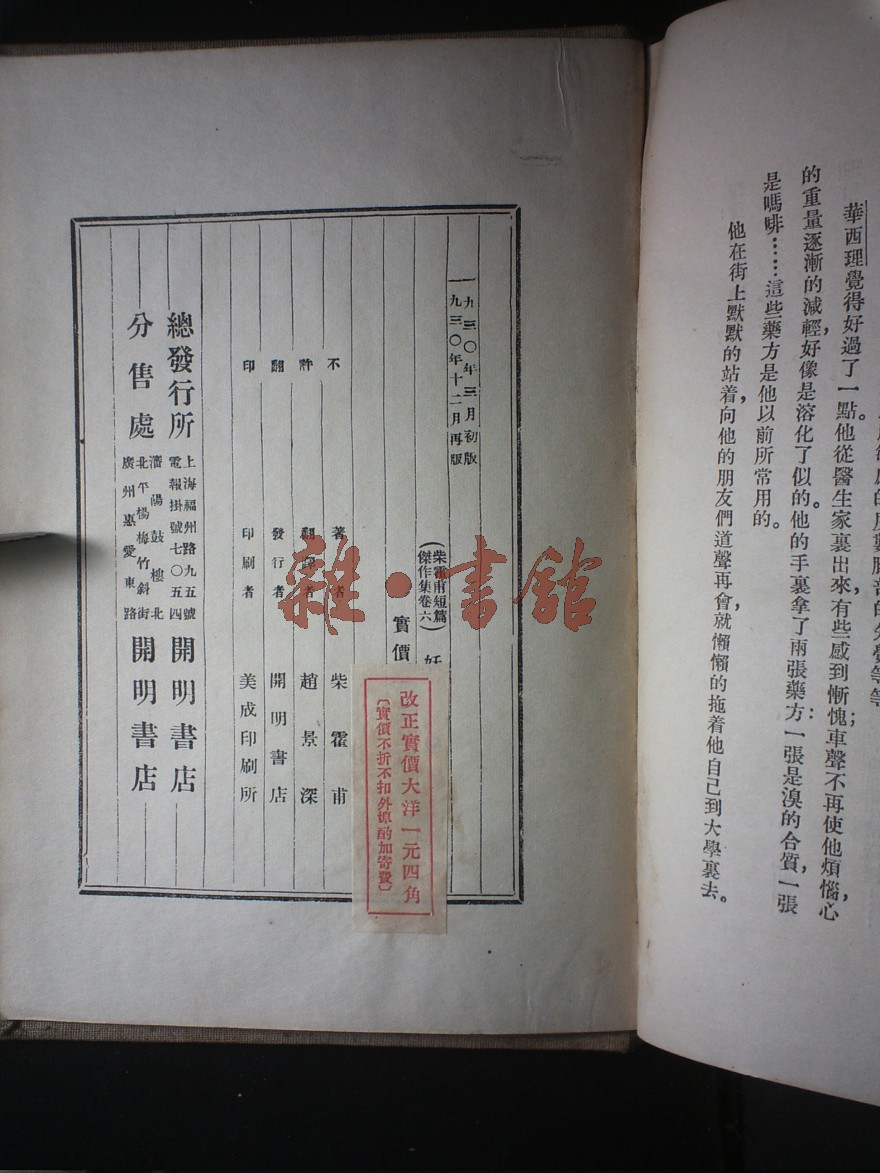 華西理覺得好過了一點。他從醫生家裏出來，有些感到慚愧；車聲不再使他煩惱，心
的重量逐漸的減輕，好像是溶化了似的。他的手裏拿了兩張藥方：一張是溴的合質，一張
是嗎啡……這些藥方是他以前所常用的。
他在街上默默的站着，向他的朋友們道聲再會，就懶懶的拖着他自己到大學裏去。
一九三〇年三月初版
一九三〇年十二月再版
（柴霍甫短篇
傑作集卷六）
實價
改正實價大洋一元四角
〔實價不折不扣外埠酌加寄費〕
不許翻印
著者 柴霍甫
翻譯者 趙景深
發行者 開明書店
印刷者 美成印刷所
總發行所 上海福州路九五號 電報掛號七〇五四 開明書店
分售處 瀋陽鼓樓北 北平楊梅竹斜街 廣州惠愛東路 開明書店
雜·書館